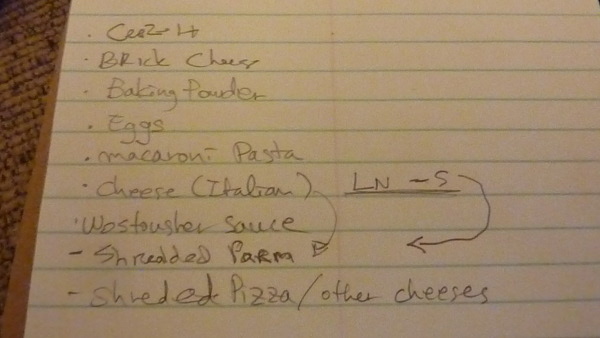 · Brick Cheese
· Baking Powder
· Eggs
· macaroni Pasta
· Cheese (Italian) LN - S
· Wostousher sauce
- Shredded Parm
- Shreded Pizza / other cheeses